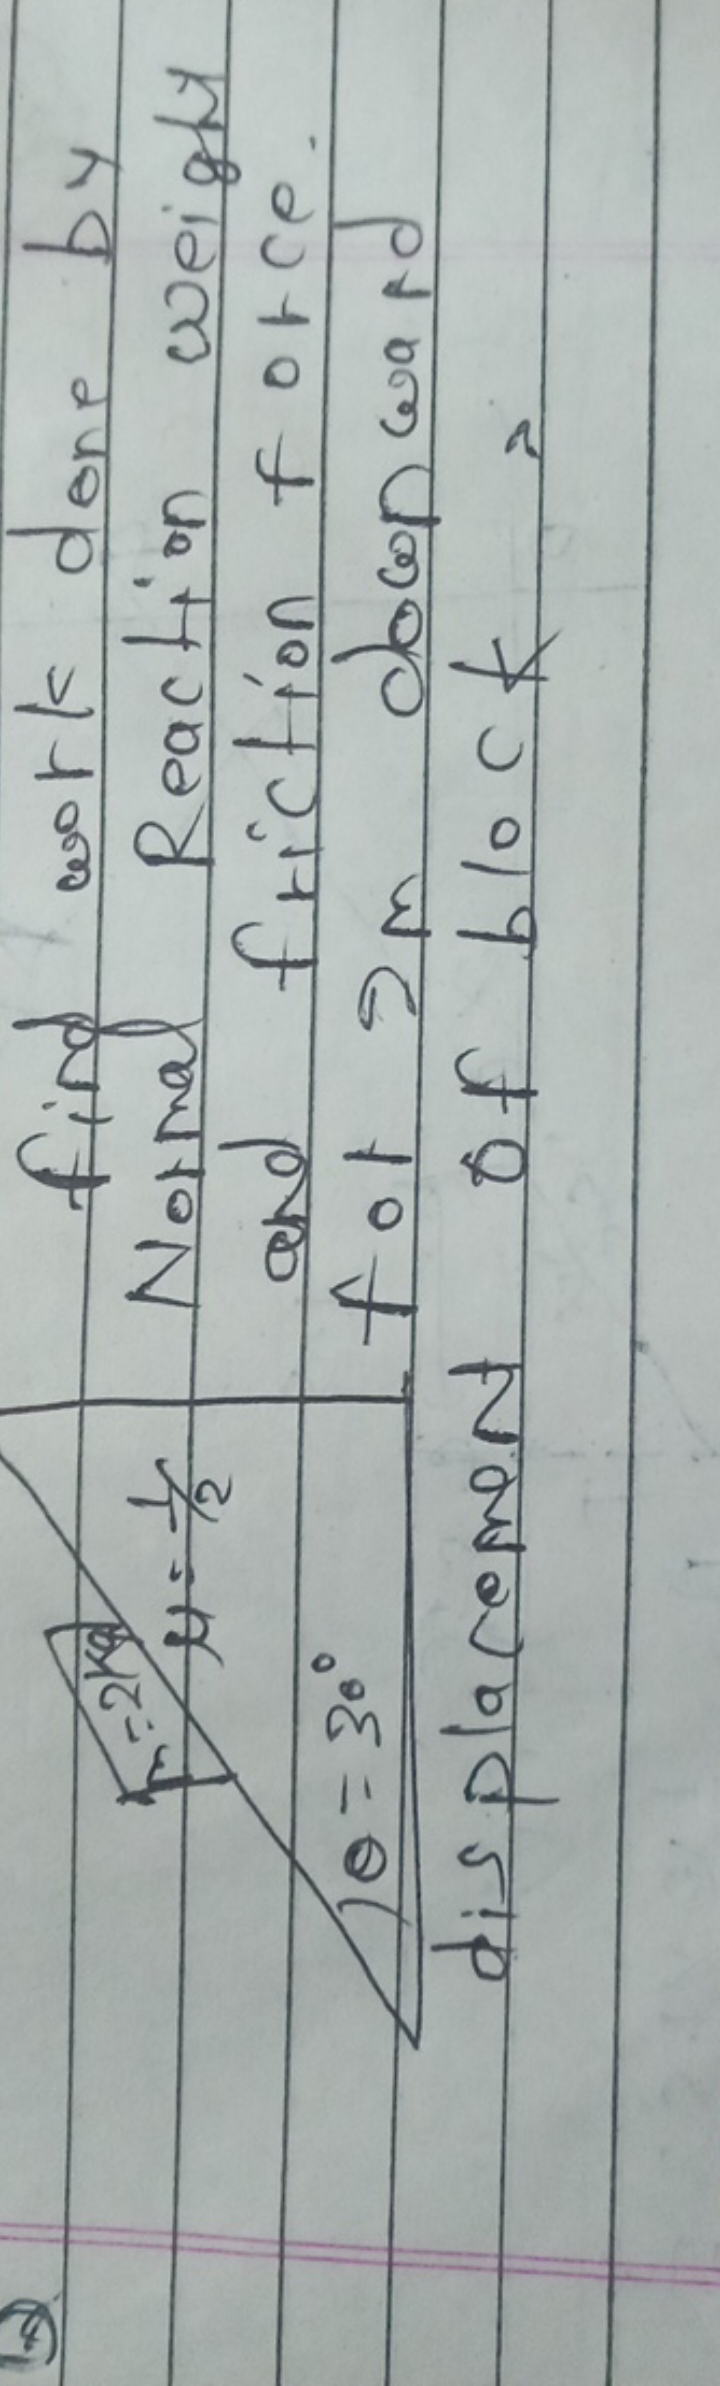 14
find work done by
Normal Reaction weight
and friction force.
for 2m downward
displacement of block ?
m=2kg
μ=1/2
θ=30°